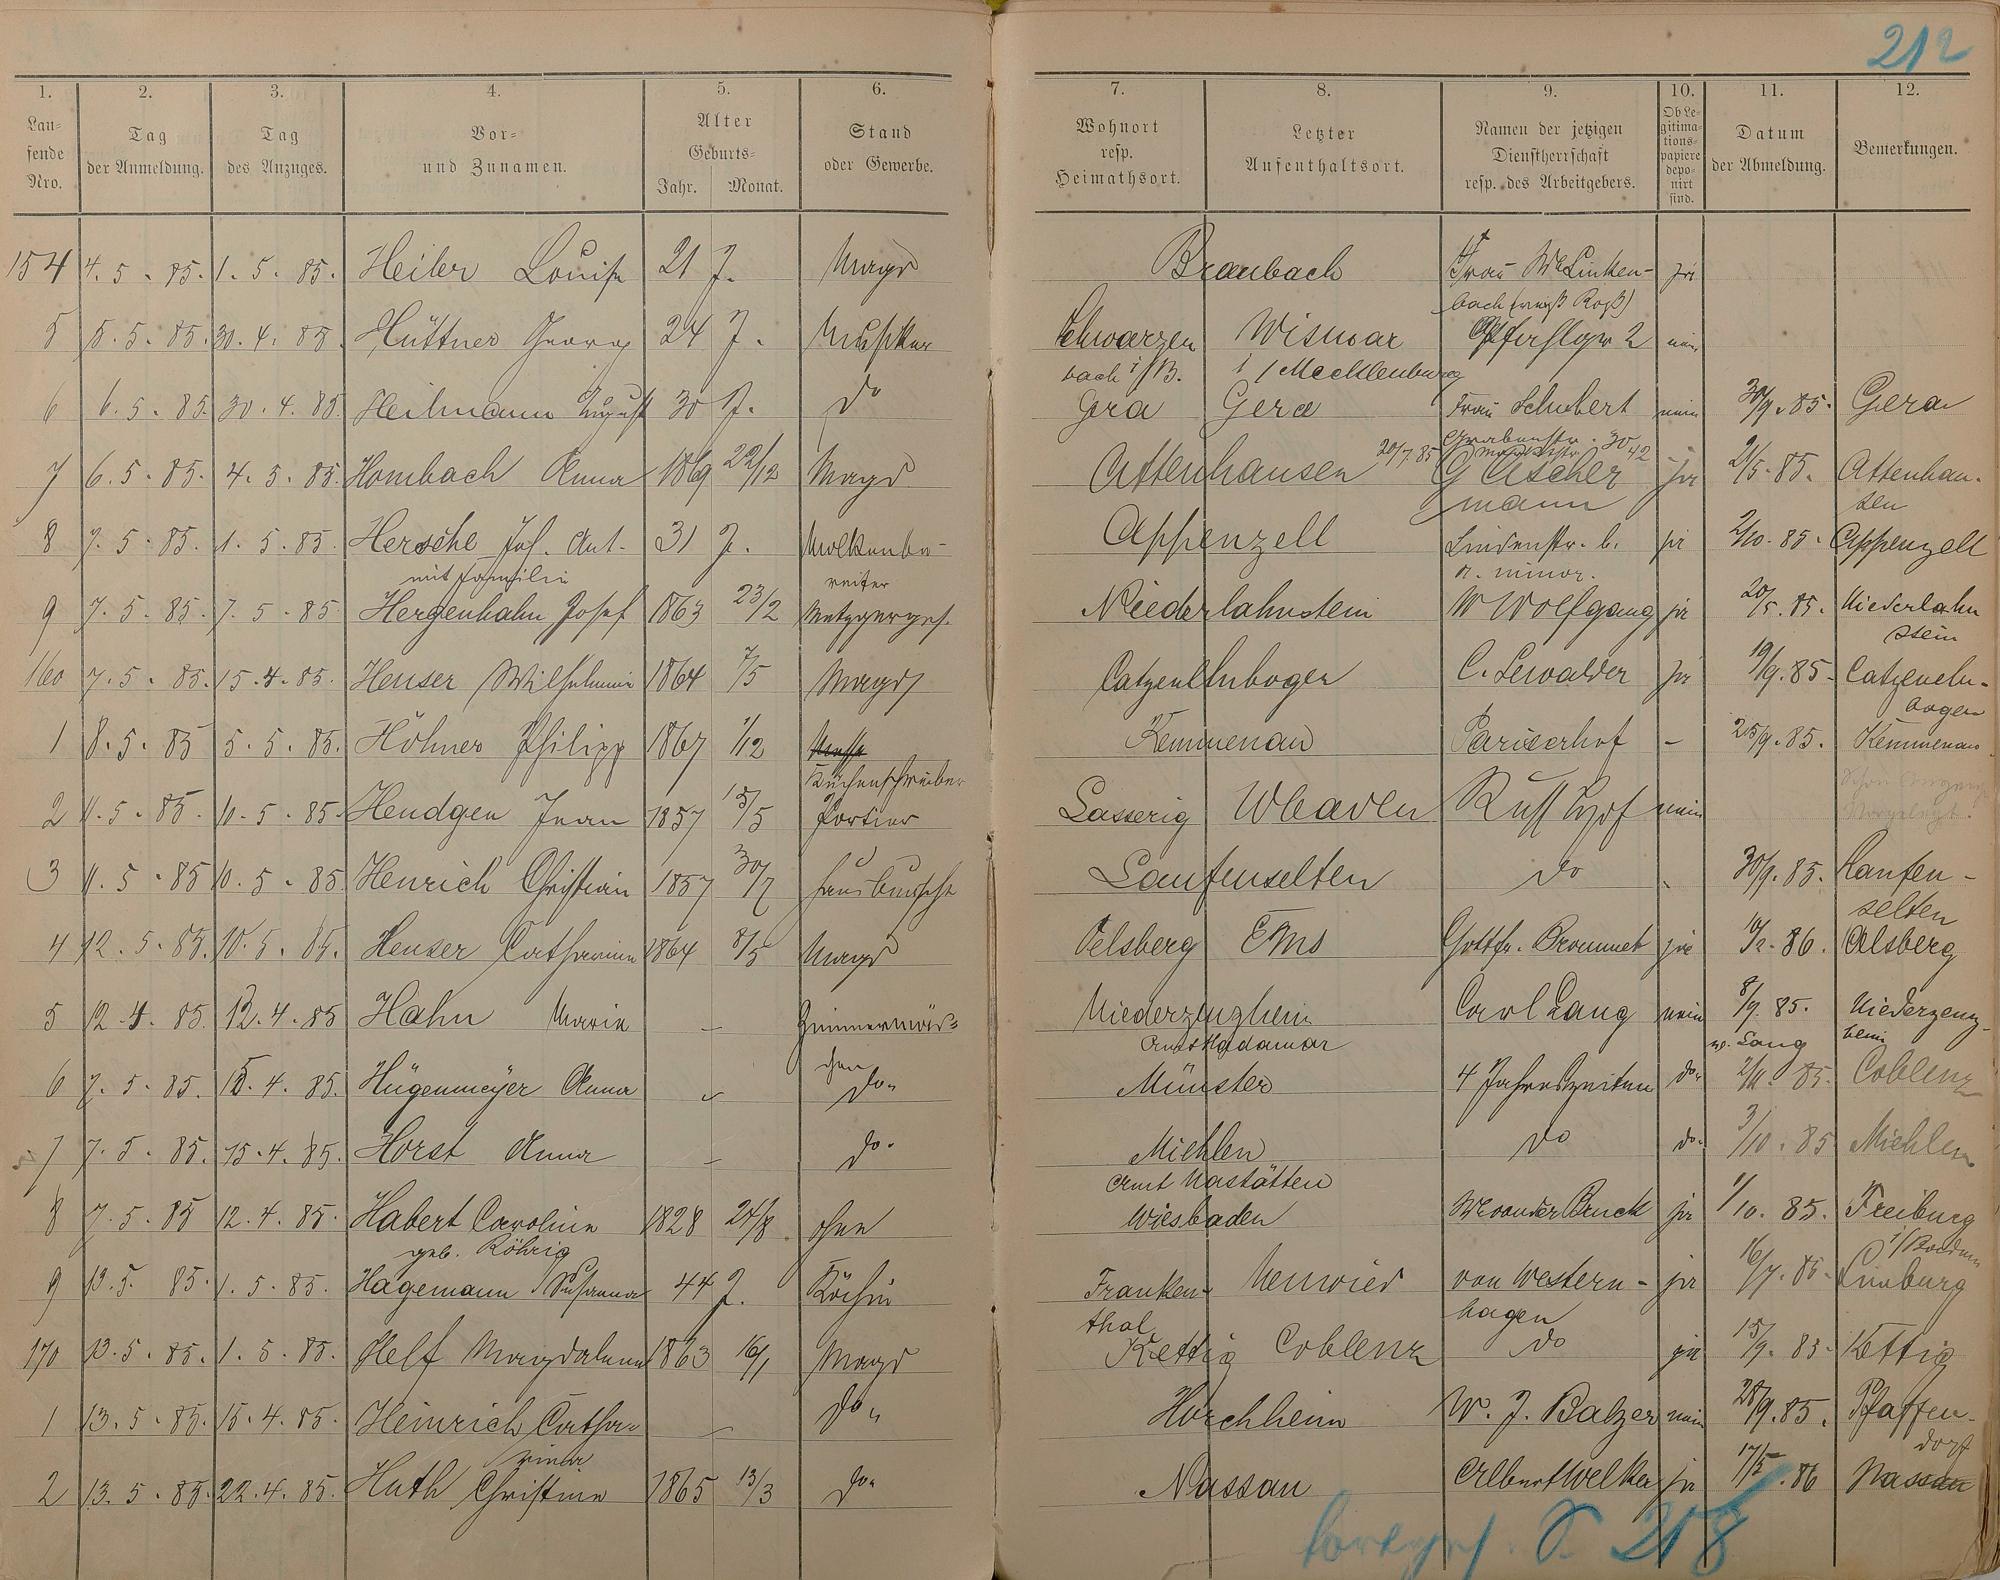 212
1. 2. 3. 4. 5. 6. 7. 8. 9. 10. 11. 12.
Laufende Nro. Tag der Anmeldung. Tag des Anzuges. Vor- und Zunamen. Alter Geburts- Jahr. Monat. Stand oder Gewerbe. Wohnort resp. Heimathsort. Letzter Aufenthaltsort. Namen der jetzigen Dienstherrschaft resp. des Arbeitgebers. Ob Legitimationspapiere deponirt sind. Datum der Abmeldung. Bemerkungen.
154 4. 5. 85. 1. 5. 85. Heiler Louise 21 J. Magd Braubach Frau We Linken- ja
bach
5 5. 5. 85. 30. 4. 85. Hüttner Georg 24 J. Musiker Schwarzen Wismar 2 nein
bach i/B. i/Mecklenburg
6 6. 5. 85. 30. 4. 85. Heilmann August 30 J. do Gera Gera Frau Schubert nein 30/9. 85. Gera
Grabenstr. 30
7 6. 5. 85. 4. 5. 85. Hombach Anna 1869 22/12 Magd Attenhausen 20/7. 85 G Ascher ja 21/5. 85. Attenhau-
mann sen
8 7. 5. 85. 1. 5. 85. Hersche Jos. Ant. 31 J. Molkenbe- Appenzell Lindenstr. b. ja 2/10. 85. Appenzell
mit Familie reiter
9 7. 5. 85. 7. 5. 85. Hergenhahn Josef 1863 23/2 Metzgerges. Niederlahnstein W Wolfgang ja 20/5. 85. Niederlahn
stein
160 7. 5. 85. 15. 4. 85. Heuser Wilhelmine 1864 7/5 Magd Catzenelnbogen C. Lewalder ja 19/9. 85. Catzeneln-
bogen
1 8. 5. 85 5. 5. 85. Höhner Philipp 1867 1/12 Kemmenau Pariserhof - 25/9. 85. Kemmenau
Küchenschreiber
2 11. 5. 85. 10. 5. 85. Hendgen Jean 1857 15/5 Portier Lasserig Wbaden Russ Hof nein
3 11. 5. 85 10. 5. 85 Henrich Christian 1857 30/7 Hausbursche Laufenselten do 30/9. 85. Laufen-
selten
4 12. 5. 85. 10. 5. 85. Heuser Catharina 1864 8/5 Magd Oelsberg Ems Gottfr. Brommet ja 86. Oelsberg
5 12. 4. 85. 12. 4. 85 Hahn Maria — Zimmermäd- Niederzeuzheim Carl Lang nein 8/9. 85. Niederzeuz-
chen Amt Hadamar Lang heim
6 7. 5. 85. 15. 4. 85. Hügenmeyer Anna do. Münster 4 Jahreszeiten do. 2/11. 85. Coblenz
7 7. 5. 85. 15. 4. 85. Horst Anna — do. Miehlen do do. 3/10. 85 Miehlen
Amt Nastätten
8 7. 5. 85 12. 4. 85. Habert Caroline 1828 24/8 ohne Wiesbaden We van der Bruck ja 1/10. 85. Freiburg
geb. Röhrig i/Baden
9 13. 5. 85. 1. 5. 85. Hagemann Susanna 44 J. Köchin Franken- Neuwied von Western- ja 16/7. 85. Limburg
thal hagen
170 13. 5. 85. 1. 5. 85. Helf Magdalena 1863 16/1 Magd Kettig Coblenz do ja 15/9. 85. Kettig
1 13. 5. 85. 15. 4. 85. Heinrich Catha- — do. Horchheim W. J. Balzer nein 28/9. 85. Pfaffen-
rina dorf
2 13. 5. 85. 22. 4. 85. Huth Christine 1865 13/3 do. Nassau Albert Welker ja 17/5. 86 Nassau
fortges. S. 218